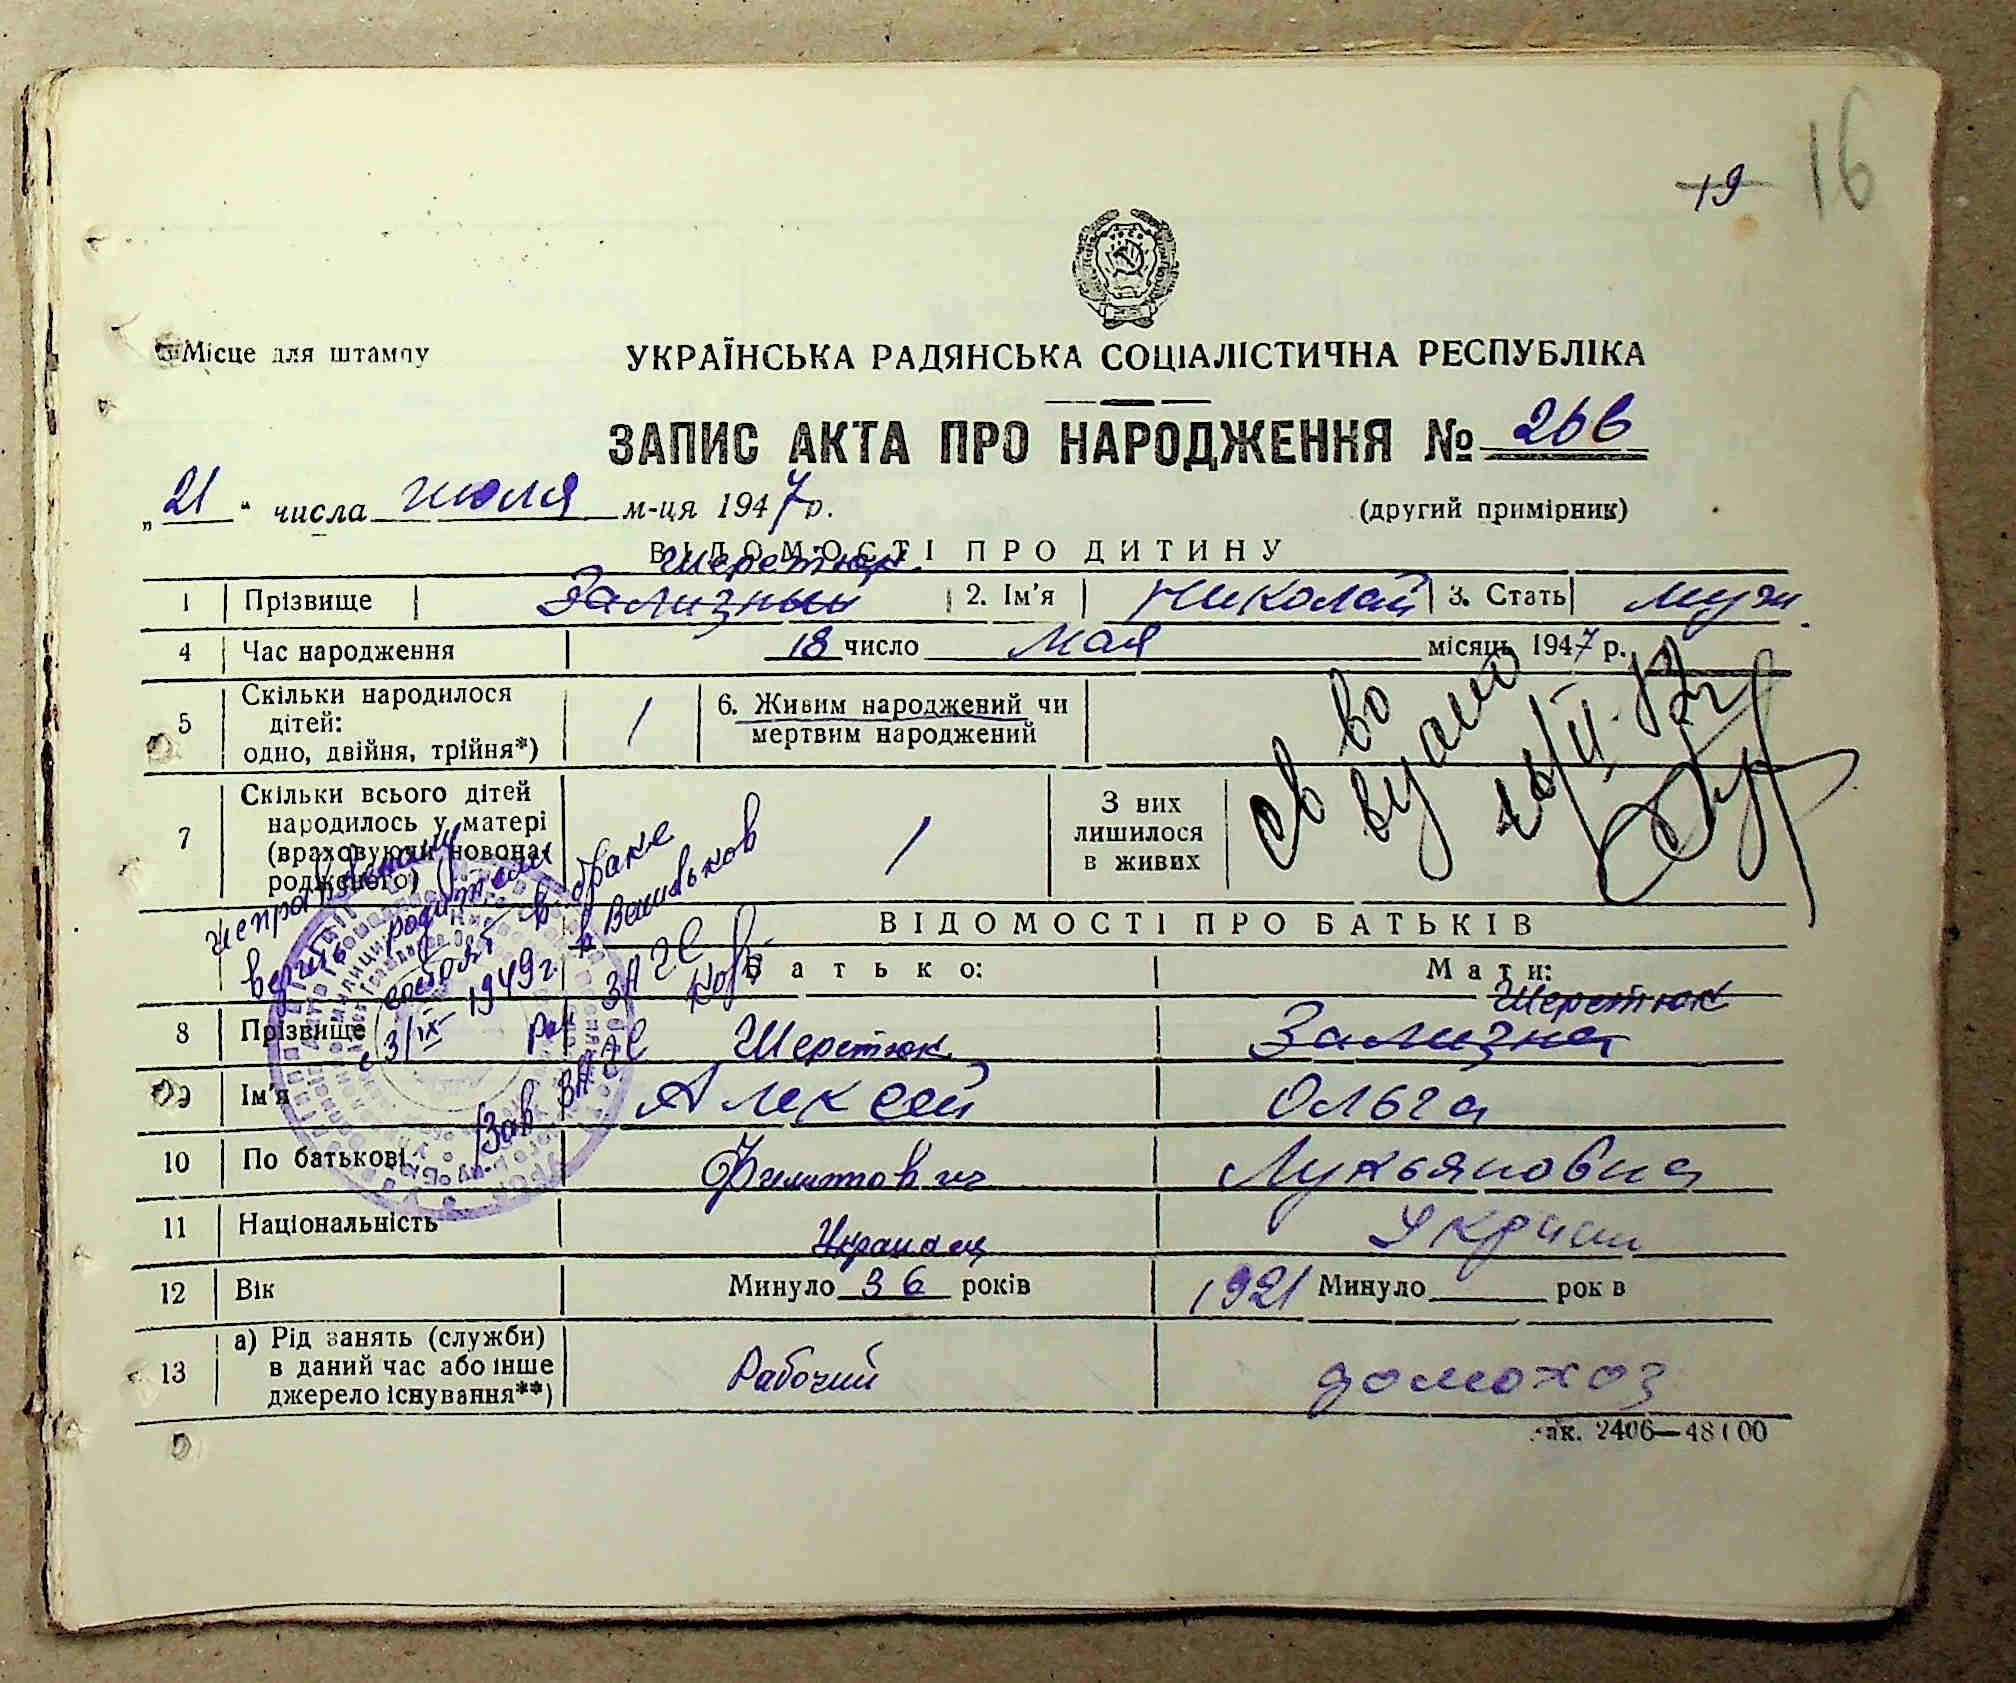 19 16
Місце для штампу
УКРАЇНСЬКА РАДЯНСЬКА СОЦІАЛІСТИЧНА РЕСПУБЛІКА
ЗАПИС АКТА ПРО НАРОДЖЕННЯ № 266
„21“ числа июля м-ця 1947 р.
(другий примірник)
ВІДОМОСТІ ПРО ДИТИНУ
Шеретюк
1 Прізвище Зализный 2. Ім'я Николай 3. Стать муж.
4 Час народження 18 число мая місяць 1947 р.
5 Скільки народилося дітей: одно, двійня, трійня*) 1 6. Живим народжений чи мертвим народжений
7 Скільки всього дітей народилось у матері (враховуючи новонародженого) 1 З них лишилося в живих
св во
выдано
исправленому
верить родители
состоят в браке
с 3/IX 1949 г.
Зав ЗАГС
ВІДОМОСТІ ПРО БАТЬКІВ
Батько: Мати:
Шеретюк
8 Прізвище Шеретюк Зализна
9 Ім'я Алексей Ольга
10 По батькові Филиппович Лукьяновна
11 Національність Украинец Украин
12 Вік Минуло 36 років 1921 Минуло рок в
13 а) Рід занять (служби) в даний час або інше джерело існування**) Рабочий домохоз
ак. 2406—48100